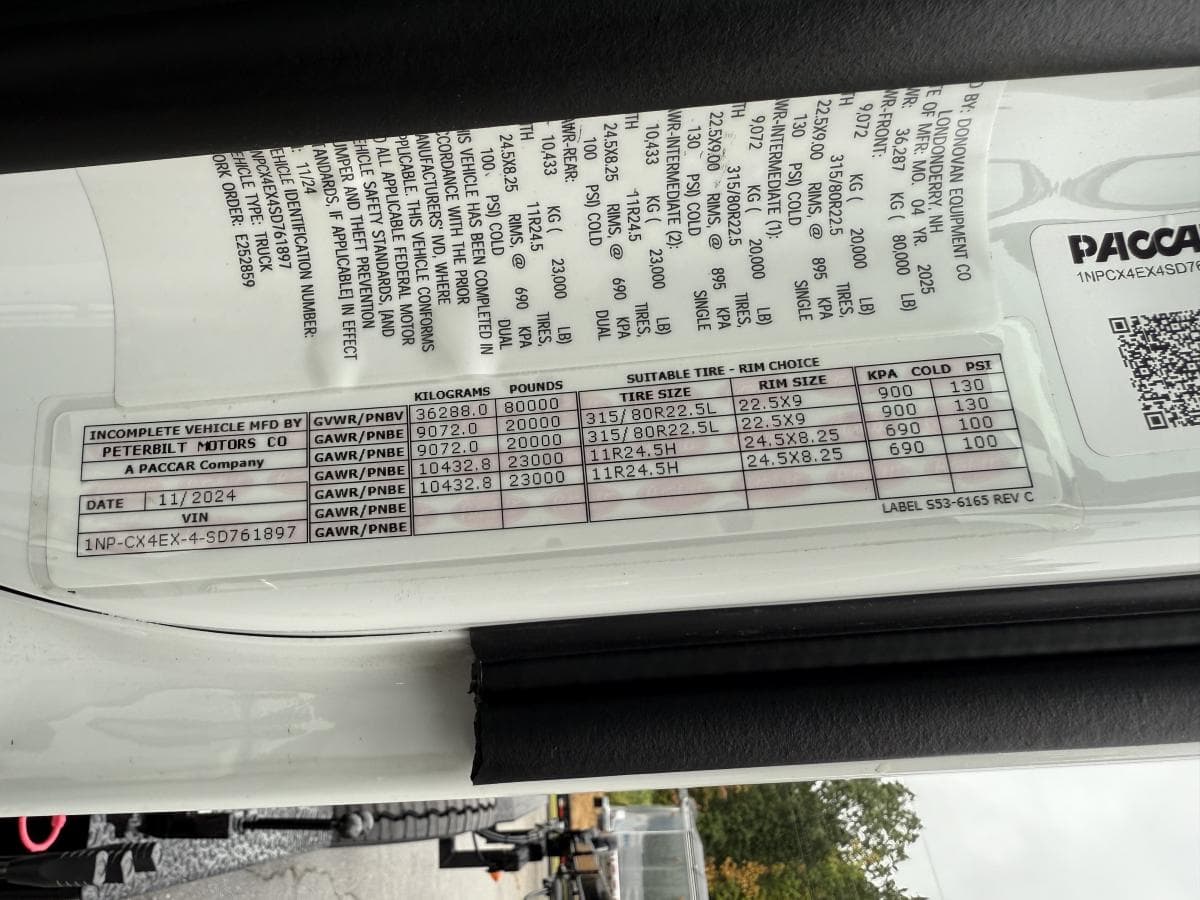 BY: DONOVAN EQUIPMENT CO
LONDONDERRY, NH
TE OF MFR: MO. 04 YR. 2025
WR: 36,287 KG ( 80,000 LB)
WR-FRONT:
9,072 KG ( 20,000 LB)
TH 315/80R22.5 TIRES,
22.5X9.00 RIMS, @ 895 KPA
130 PSI) COLD SINGLE
WR-INTERMEDIATE (1):
9,072 KG ( 20,000 LB)
TH 315/80R22.5 TIRES,
22.5X9.00 RIMS, @ 895 KPA
130 PSI) COLD SINGLE
WR-INTERMEDIATE (2):
10,433 KG ( 23,000 LB)
TH 11R24.5 TIRES,
24.5X8.25 RIMS, @ 690 KPA
100 PSI) COLD DUAL
AWR-REAR:
10,433 KG ( 23,000 LB)
TH 11R24.5 TIRES,
24.5X8.25 RIMS, @ 690 KPA
100 PSI) COLD DUAL
IS VEHICLE HAS BEEN COMPLETED IN
CCORDANCE WITH THE PRIOR
ANUFACTURERS' IVD, WHERE
PPLICABLE. THIS VEHICLE CONFORMS
ALL APPLICABLE FEDERAL MOTOR
EHICLE SAFETY STANDARDS, [AND
UMPER AND THEFT PREVENTION
TANDARDS, IF APPLICABLE] IN EFFECT
: 11/24
EHICLE IDENTIFICATION NUMBER:
NPCX4EX4SD761897
EHICLE TYPE: TRUCK
ORK ORDER: E252859
PACCA
1NPCX4EX4SD76
KILOGRAMS POUNDS SUITABLE TIRE - RIM CHOICE
TIRE SIZE RIM SIZE KPA COLD PSI
INCOMPLETE VEHICLE MFD BY GVWR/PNBV 36288.0 80000
PETERBILT MOTORS CO GAWR/PNBE 9072.0 20000 315/80R22.5L 22.5X9 900 130
A PACCAR Company GAWR/PNBE 9072.0 20000 315/80R22.5L 22.5X9 900 130
GAWR/PNBE 10432.8 23000 11R24.5H 24.5X8.25 690 100
DATE 11/2024 GAWR/PNBE 10432.8 23000 11R24.5H 24.5X8.25 690 100
VIN GAWR/PNBE
1NP-CX4EX-4-SD761897 GAWR/PNBE
LABEL S53-6165 REV C